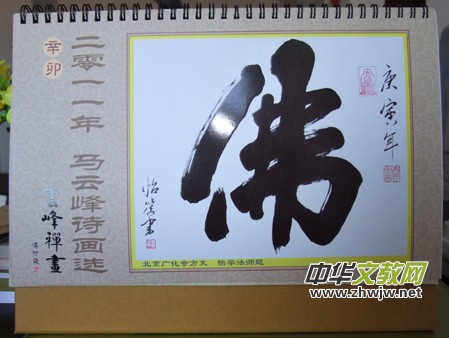 辛卯
二零一一年 马云峰诗画选
雲峰禅畫
佛
庚寅年
怡学书
北京广化寺方丈 怡学法师题
中华文教网
www.zhwjw.net